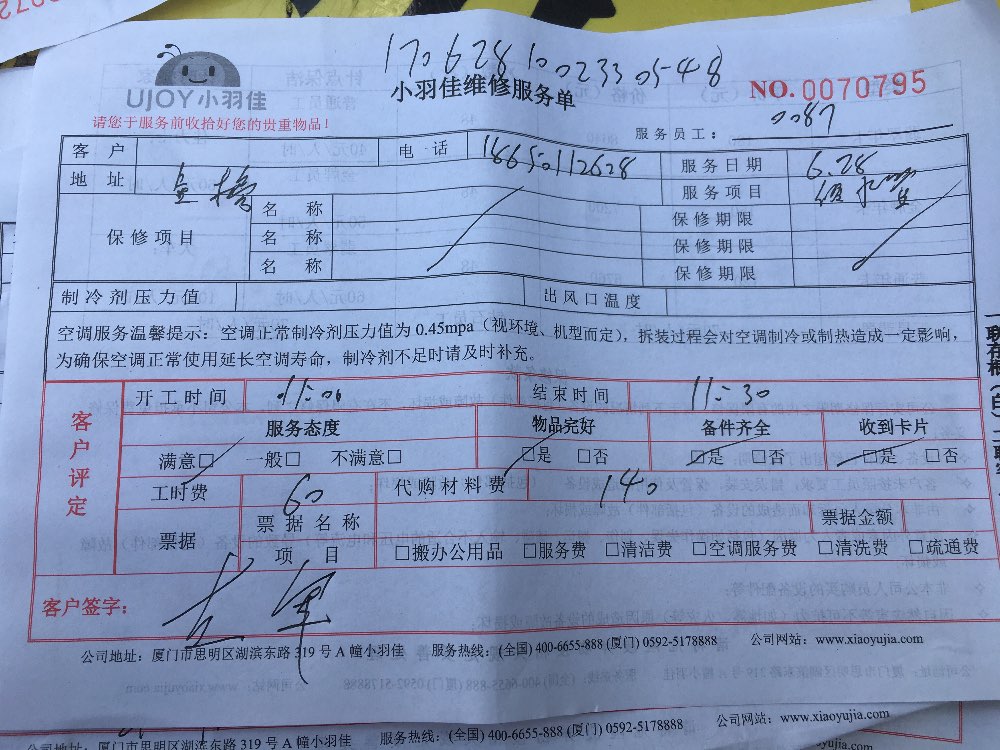 170628100233 0548
UJOY小羽佳
小羽佳维修服务单
NO.0070795
请您于服务前收拾好您的贵重物品!
服务员工: 0087
客 户 电 话 18650112628 服务日期 6.28
地 址 金榜 服务项目 修水管
保修项目
名 称 保修期限
名 称 保修期限
名 称 保修期限
制冷剂压力值 出风口温度
空调服务温馨提示:空调正常制冷剂压力值为 0.45mpa(视环境、机型而定),拆装过程会对空调制冷或制热造成一定影响,
为确保空调正常使用延长空调寿命,制冷剂不足时请及时补充。
客户评定
开工时间 11:00 结束时间 11:30
服务态度 物品完好 备件齐全 收到卡片
满意□ 一般□ 不满意□ □是 □否 □是 □否 □是 □否
工时费 60 代购材料费 140
票据 票据名称 票据金额
项 目 □搬办公用品 □服务费 □清洁费 □空调服务费 □清洗费 □疏通费
客户签字:
公司地址:厦门市思明区湖滨东路 319 号 A 幢小羽佳 服务热线:(全国) 400-6655-888 (厦门) 0592-5178888 公司网站:www.xiaoyujia.com
公司地址:厦门市思明区湖滨东路 319 号 A 幢小羽佳 服务热线:(全国) 400-6655-888 (厦门) 0592-5178888 公司网站:www.xiaoyujia.com